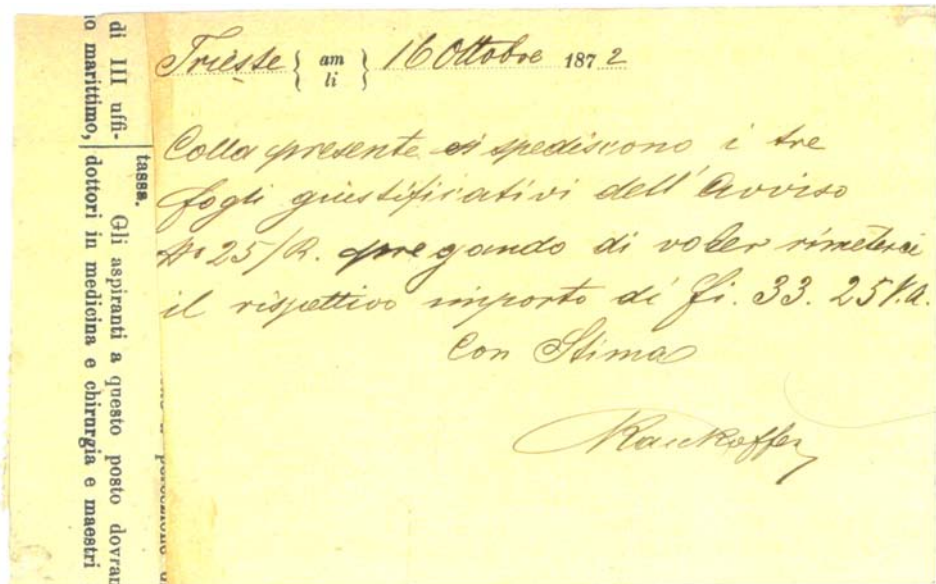 Trieste { am li } 16 Ottobre 1872
Colla presente si spediscono i tre
fogli giustificativi dell' Avviso
No 25/R. pregando di voler rimeterci
il rispettivo importo di fi. 33. 25 V.a.
Con Stima
di III uffi-
no marittimo,
tassa. Gli aspiranti a questo posto dovran
dottori in medicina e chirurgia e maestri